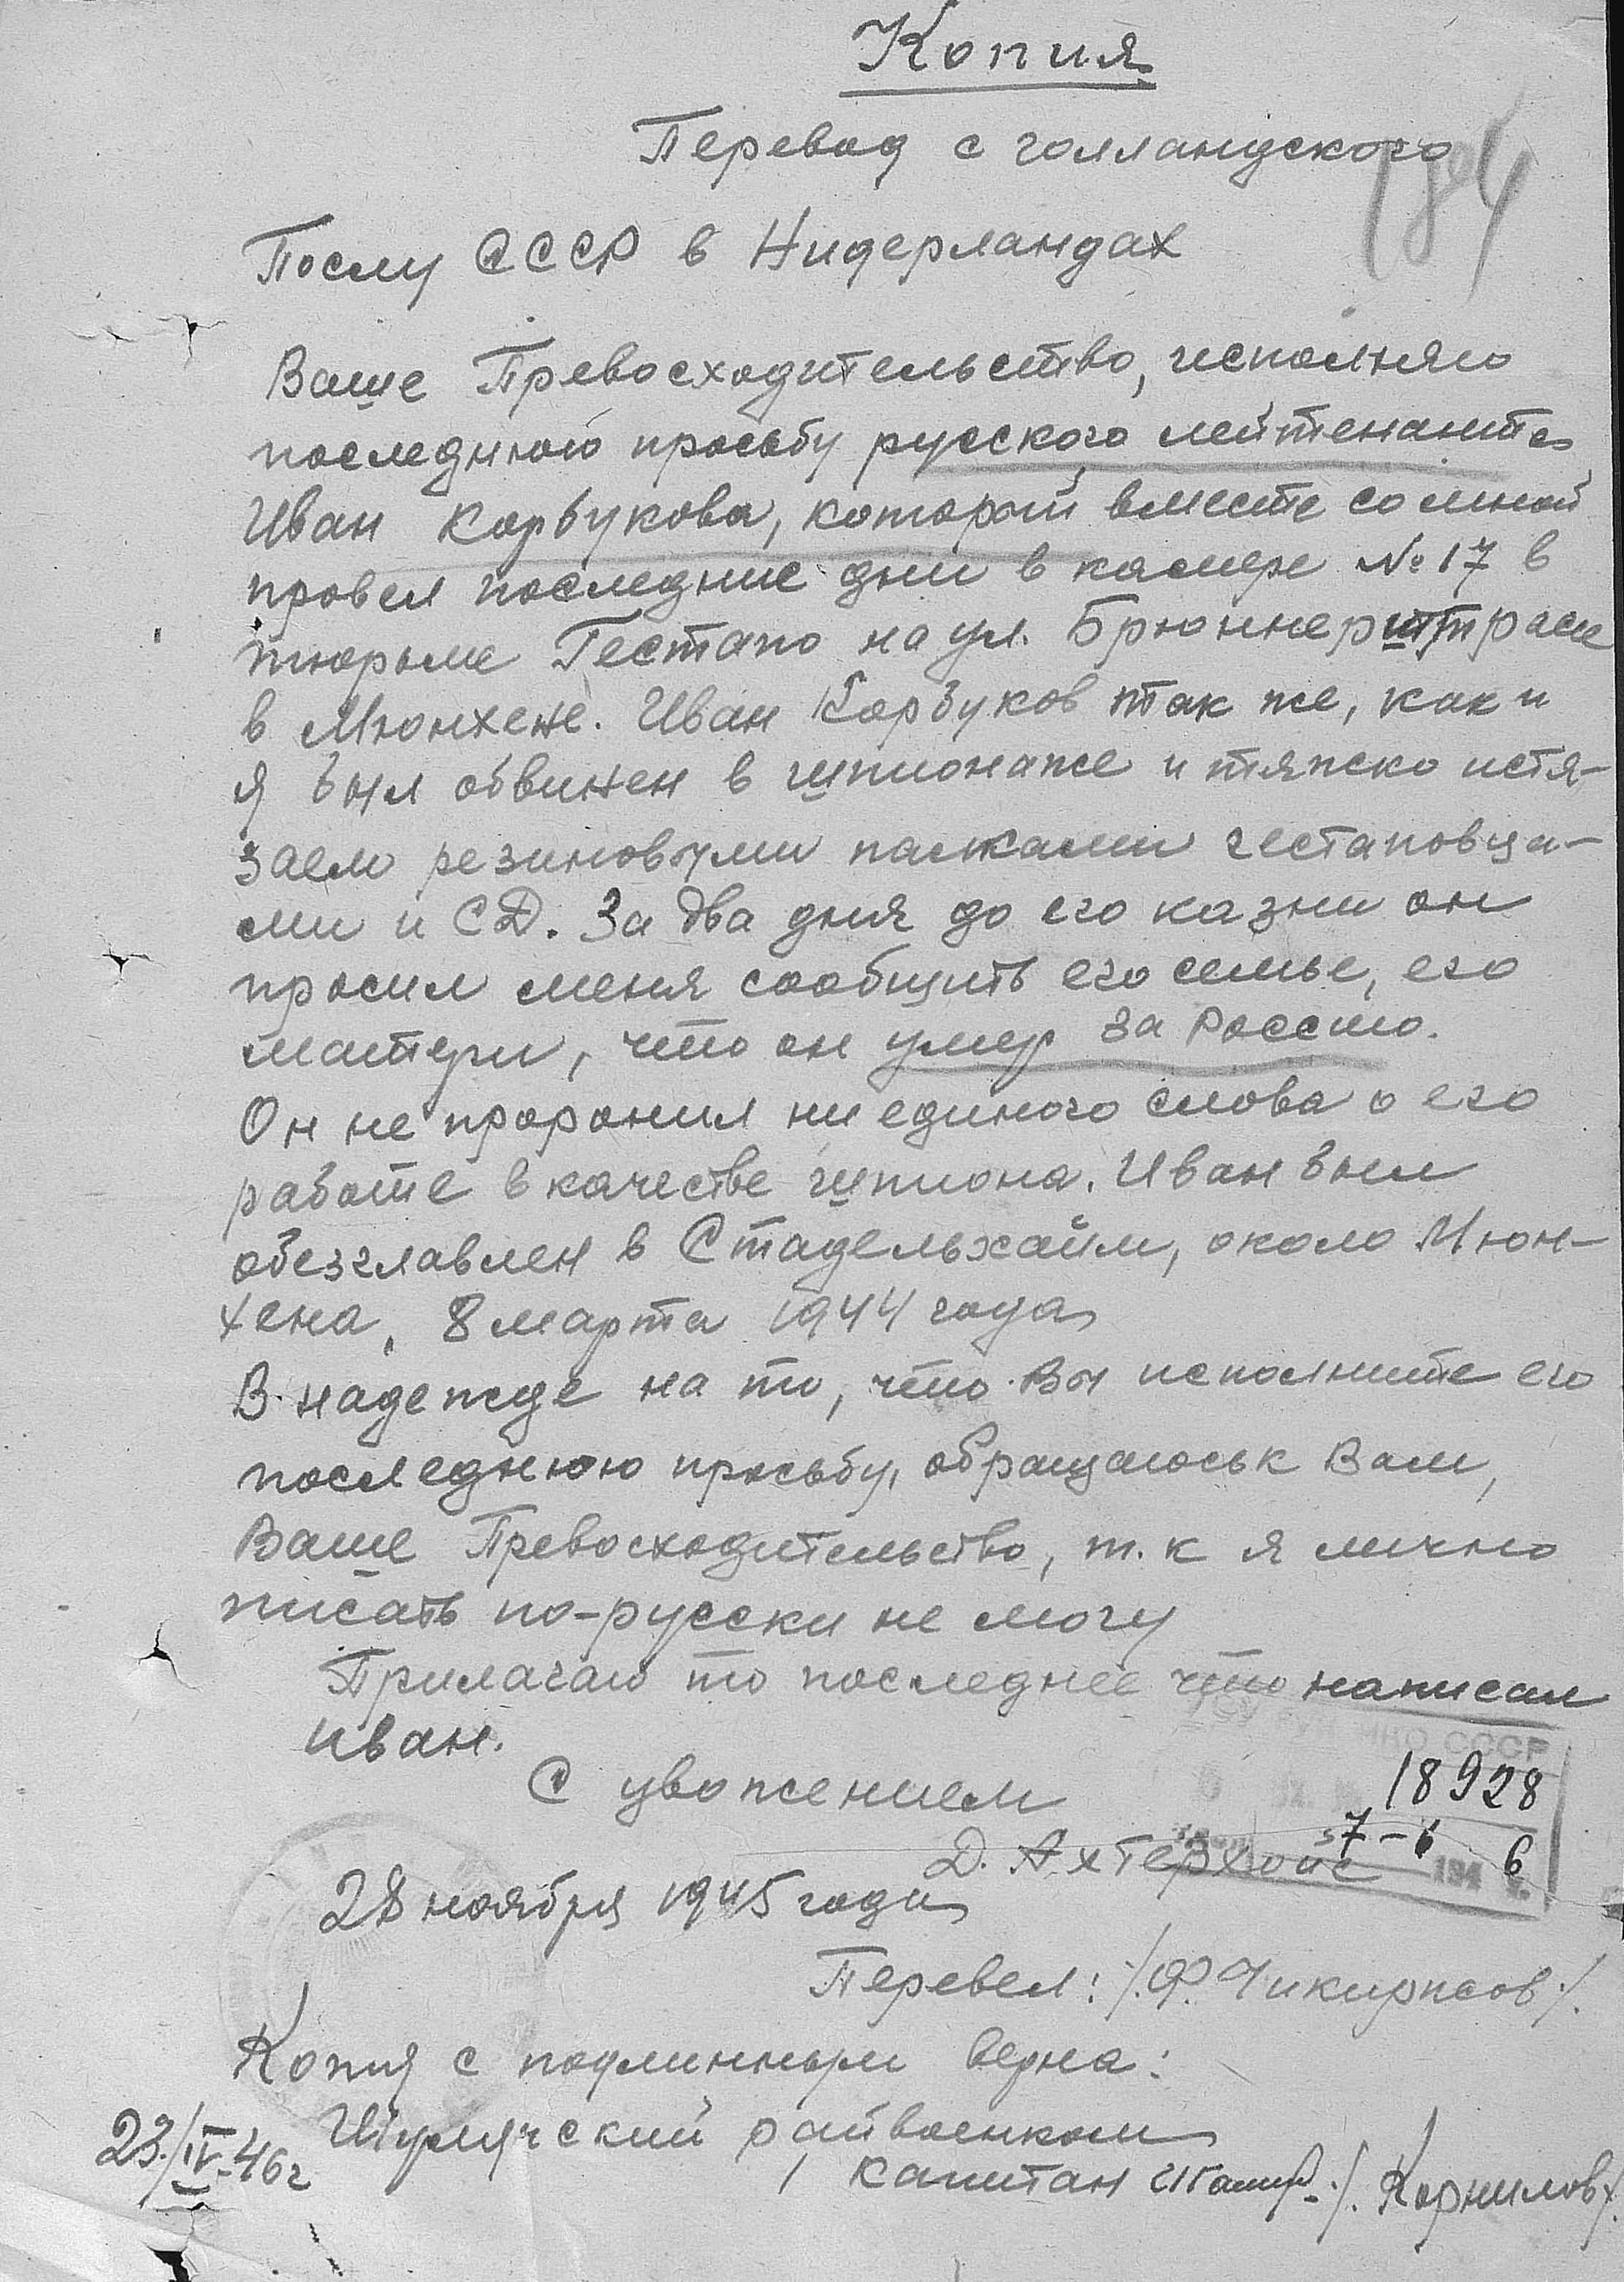 Копия
Перевод с голландского
Послу СССР в Нидерландах
Ваше Превосходительство, исполняю
последнюю просьбу русского лейтенанта
Иван Корбукова, который вместе со мной
провел последние дни в камере №17 в
тюрьме Гестапо на ул. Брюннерштрассе
в Мюнхене. Иван Корбуков так же, как и
я был обвинен в шпионаже и тяжско истя-
заем резиновыми палками гестаповца-
ми и СД. За два дня до его казни он
просил меня сообщить его семье, его
матери, что он умер за Россию.
Он не проронил ни единого слова о его
работе в качестве шпиона. Иван был
обезглавлен в Стадельхайм, около Мюн-
хена, 8 марта 1944 года
В надежде на то, что Вы исполните его
последнюю просьбу, обращаюсь к Вам,
Ваше Превосходительство, т.к я лично
писать по-русски не могу
Прилагаю то последнее что написал
Иван.
С уважением
18928
Д. Ахтерхойс
7-6 6
194
28 ноября 1945 года
Перевел: /.Ф. Чикирисов/.
Копия с подлинным верна:
Шумячский райвоенком
23/IV-46г
капитан /. Корнилов/.